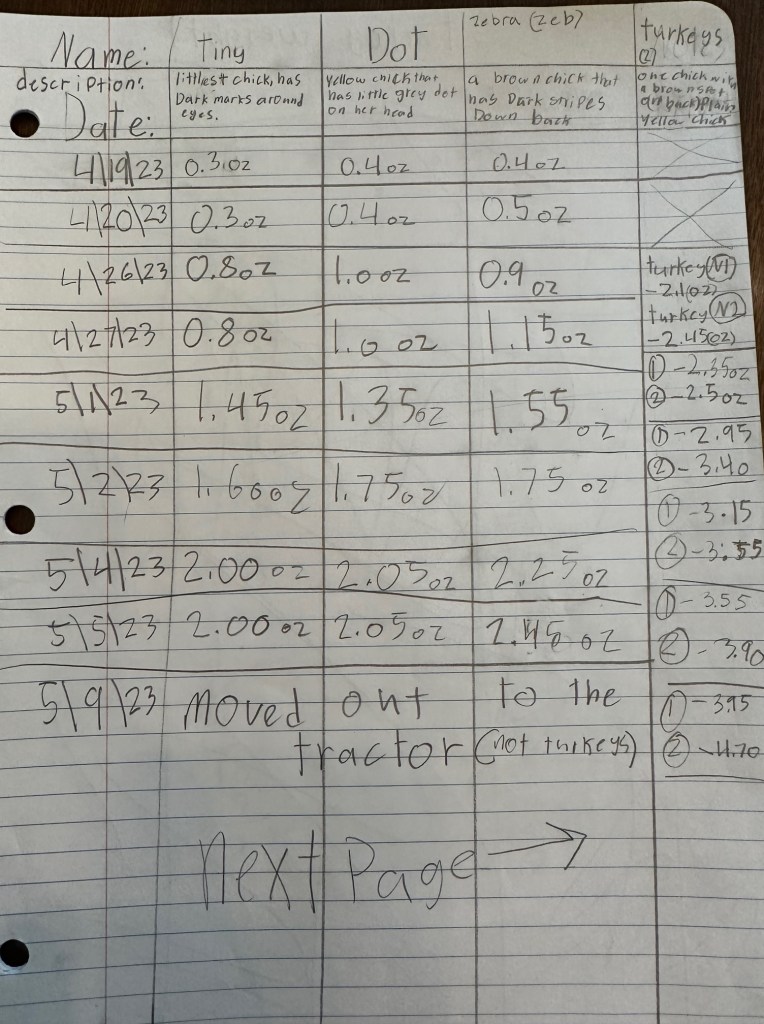 Name: tiny Dot zebra (zeb) turkeys (2)
description: littlest chick, has Dark marks around eyes. yellow chick that has little grey dot on her head a brown chick that has Dark stripes Down back one chick with a brown spot on back/Plain yellow chick
Date:
4\19\23 0.3oz 0.4oz 0.4oz
4\20\23 0.3oz 0.4oz 0.5oz
4\26\23 0.8oz 1.0oz 0.9oz turkey (N1) -2.1(oz) turkey (N2) -2.45(oz)
4\27\23 0.8oz 1.0oz 1.15oz ① -2.35oz ② -2.5oz
5\1\23 1.45oz 1.35oz 1.55oz ① - 2.95 ② - 3.40
5\2\23 1.60oz 1.75oz 1.75oz ① -3.15 ② -3.55
5\4\23 2.00oz 2.05oz 2.25oz ① - 3.55 ② - 3.90
5\5\23 2.00oz 2.05oz 2.45oz
5\9\23 moved out to the tractor (not turkeys) ① - 3.95 ② -4.70
Next Page →